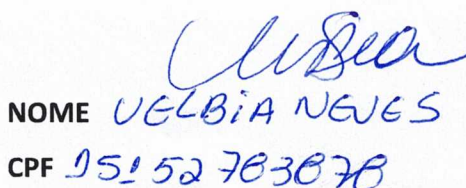 NOME VELBIA NEVES
CPF 15152783878